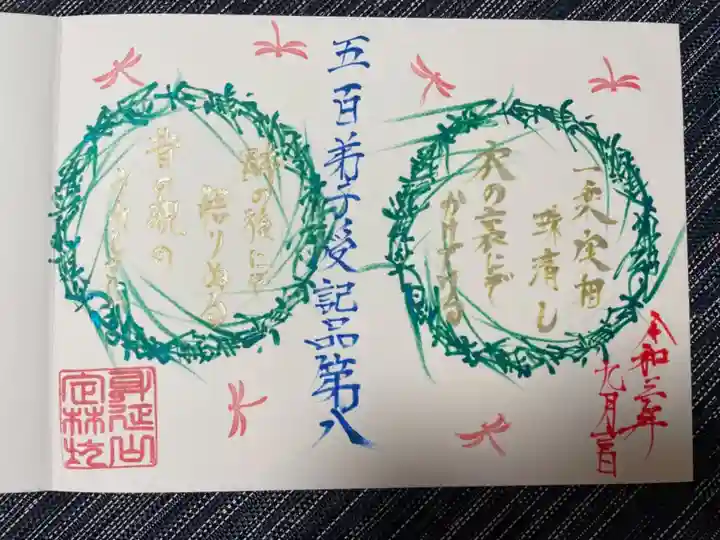 一乗実相
珠清し
衣の裏にぞ
かけてける
五百弟子受記品第八
酔の後にぞ
悟りぬる
昔の親の
令和三年
九月三日
身延山
定林坊